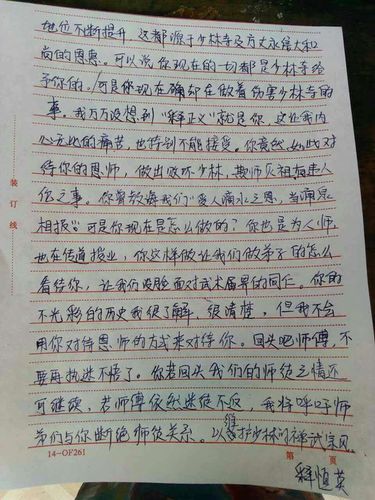 地位不断提升，这都源于少林寺及方丈永信大和
尚的恩惠。可以说你现在的一切都是少林寺给
予你的。可是你现在确却在做着伤害少林寺的
事。我万万没想到"释正义"就是你，这让我内
心无比的痛苦，也特别不能接受。你竟然如此对
待你的恩师，做出败坏少林，欺师灭祖
之事。你曾教导我们"受人滴水之恩，当涌泉
相报"可是你现在是怎么做的？你也是为人师，
也在传道授业，你这样做让我们做弟子的怎么
看待你，让我们没脸面对武术届早的同仁。你的
不光彩的历史我很了解，很清楚，但我不会
用你对待恩师的方式来对待你。回头吧师傅，不
要再执迷不悟了。你若回头我们的师徒之情还
可继续，若师傅依然迷徒不返，我将呼吁师
弟们与你断绝师徒关系。以维护少林的禅武宗风。
装订线
14-OF261
第 页
释恒英